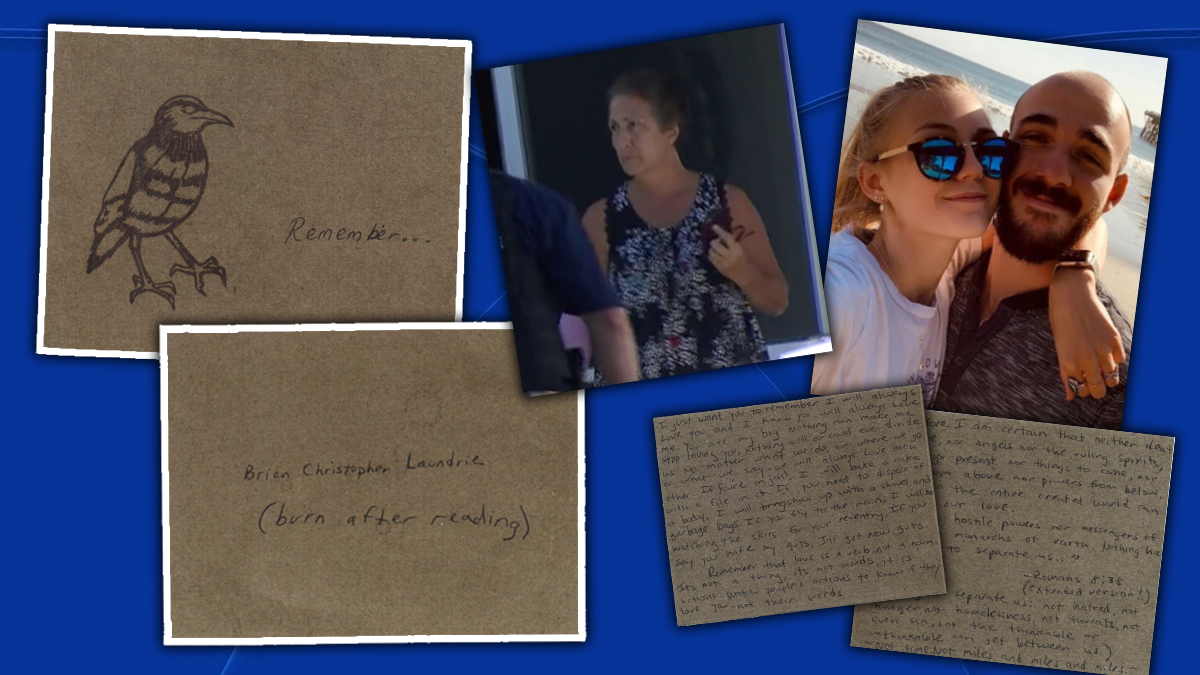 Remember...
Brian Christopher Laundrie
(burn after reading)
I just want you to remember I will always
love you and I know you will always love
me. You are my boy. Nothing can make me
stop loving you, nothing will or could ever divide
us. No matter what we do, or where we go
or what we say - we will always love each
other. If you're in jail I will bake a cake
with a file in it. If you need to dispose of
a body, I will show up with a shovel and
garbage bags. If you fly to the moon, I will be
watching the skies for your re-entry. If you
say you hate my guts, I'll get new guts.
Remember that love is a verb not a noun.
It's not a thing, it's not words, it is
actions. Watch people's actions to know if they
love you - not their words.
I am certain that neither
nor angels nor the ruling spirits,
present nor things to come, nor
above, nor powers from below
the entire created world can
our love.
hostile powers nor messengers of
monarchs of earth. Nothing has
to separate us..."
-Romans 8:38
(extended version!)
separate us: not hatred, not
hunger, not homelessness, not threats, not
even sin, not the thinkable or
unthinkable can get between us.)
~Not time. Not miles and miles and miles~